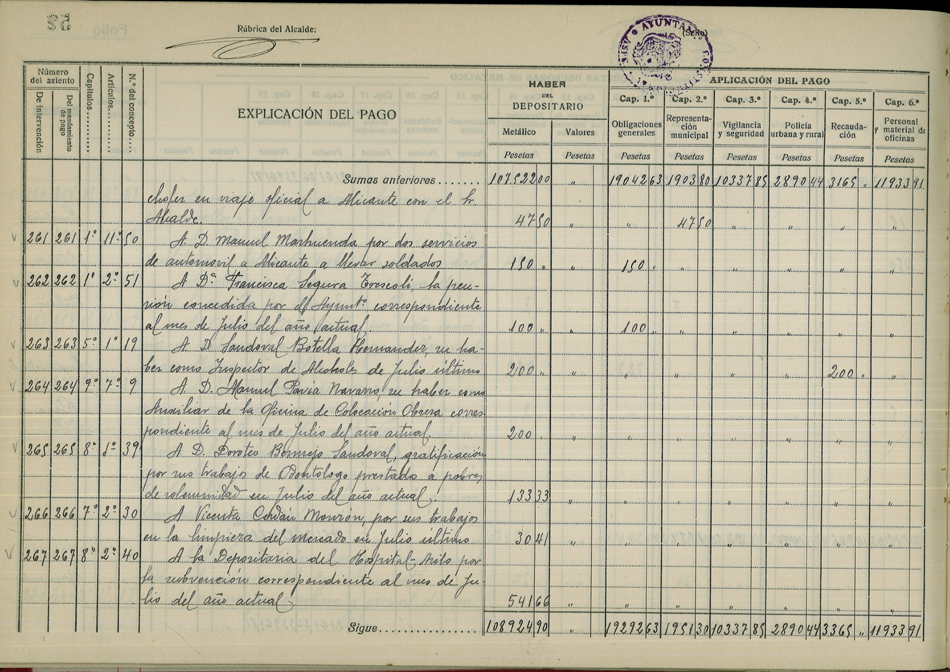 58
Rúbrica del Alcalde:
(Sello)
AYUNTAM
Número del asiento
De intervención
Del mandamiento de pago
Capítulos
Artículos
N.º del concepto
EXPLICACIÓN DEL PAGO
HABER DEL DEPOSITARIO
Metálico Valores
Pesetas Pesetas
APLICACIÓN DEL PAGO
Cap. 1.º Cap. 2.º Cap. 3.º Cap. 4.º Cap. 5.º Cap. 6.º
Obligaciones generales Representación municipal Vigilancia y seguridad Policía urbana y rural Recaudación Personal y material de oficinas
Pesetas Pesetas Pesetas Pesetas Pesetas Pesetas
Sumas anteriores 107522 00 " 19042 63 1903 80 10337 85 2890 44 3165 " 11933 91
chofer en viaje oficial a Alicante con el Sr.
Alcalde. 47 50 " " 47 50 " " " "
261 261 1º 11º 50 A D. Manuel Marhuenda por dos servicios
de automovil a Alicante a llevar soldados 150 " " 150 " " " " " "
262 262 1º 2º 51 A Dª Francisca Segura Trescoli, la pen-
sión concedida por el Aymtº correspondiente
al mes de Julio del año actual. 100 " " 100 " " " " " "
263 263 5º 1º 19 A D. Sandoval Botella Hernandez, su ha-
ber como Inspector de Alcoholes de Julio último 200 " " " " " " 200 " "
264 264 9º 7º 9 A D. Manuel Pavia Navarro su haber como
Auxiliar de la Oficina de Colocación Obrera corres-
pondiente al mes de Julio del año actual. 200 " " " " " " " "
265 265 8º 1º 39 A D. Doroteo Bermejo Sandoval, gratificación
por sus trabajos de Odontólogo prestado a pobres
de solemnidad en Julio del año actual. 133 33 " " " " " " "
266 266 7º 2º 30 A Vicenta Cerdán Monzón, por sus trabajos
en la limpieza del mercado en Julio último 30 41 " " " " " " "
267 267 8º 2º 40 A la Depositaria del Hospital Asilo por
la subvención correspondiente al mes de Ju-
lio del año actual 541 66 " " " " " " "
Sigue 108924 90 19292 63 1951 30 10337 85 2890 44 3365 " 11933 91